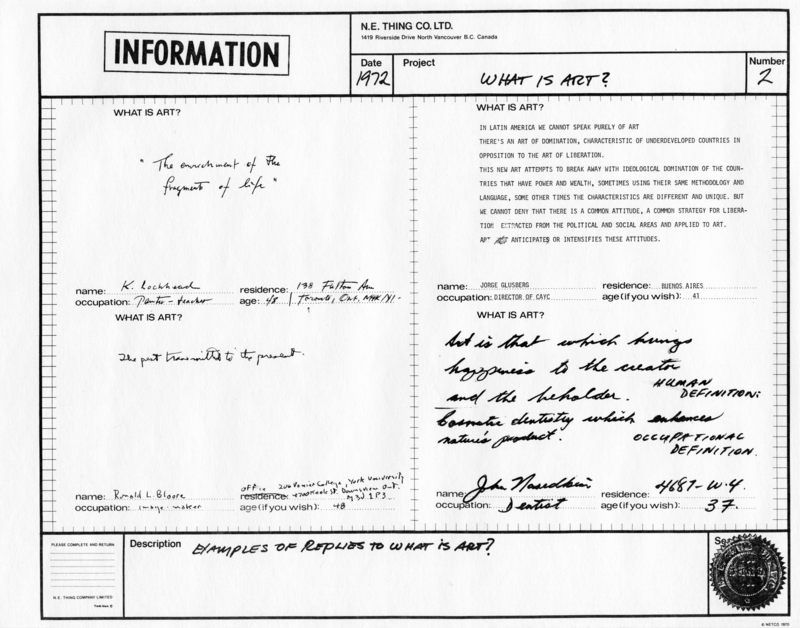 INFORMATION
N.E. THING CO. LTD.
1419 Riverside Drive North Vancouver B.C. Canada
Date
1972
Project
WHAT IS ART?
Number
2
WHAT IS ART?
"The enrichment of the
fragments of life"
name: K. Lochhead
residence: 138 Fulton Ave
occupation: Painter-teacher
age: 48
Toronto, Ont. M4K 1Y1-
WHAT IS ART?
IN LATIN AMERICA WE CANNOT SPEAK PURELY OF ART
THERE'S AN ART OF DOMINATION, CHARACTERISTIC OF UNDERDEVELOPED COUNTRIES IN
OPPOSITION TO THE ART OF LIBERATION.
THIS NEW ART ATTEMPTS TO BREAK AWAY WITH IDEOLOGICAL DOMINATION OF THE COUN-
TRIES THAT HAVE POWER AND WEALTH, SOMETIMES USING THEIR SAME METHODOLOGY AND
LANGUAGE, SOME OTHER TIMES THE CHARACTERISTICS ARE DIFFERENT AND UNIQUE. BUT
WE CANNOT DENY THAT THERE IS A COMMON ATTITUDE, A COMMON STRATEGY FOR LIBERA-
TION EXTRACTED FROM THE POLITICAL AND SOCIAL AREAS AND APPLIED TO ART.
ART ANTICIPATES OR INTENSIFIES THESE ATTITUDES.
name: JORGE GLUSBERG
residence: BUENOS AIRES
occupation: DIRECTOR OF CAYC
age (if you wish): 41
WHAT IS ART?
The past transmitted to the present.
name: Ronald L. Bloore
office 206 Vanier College, York University
residence: 4700 Keele St. Downsview Ont.
M3J 1P3
occupation: image-maker
age (if you wish): 48
WHAT IS ART?
Art is that which brings
happiness to the creator
and the beholder.
HUMAN
DEFINITION:
Cosmetic dentistry which enhances
nature's product.
OCCUPATIONAL
DEFINITION.
name: John
residence: 4687-W-4.
occupation: Dentist
age (if you wish): 37.
PLEASE COMPLETE AND RETURN
N.E. THING COMPANY LIMITED
Description
EXAMPLES OF REPLIES TO WHAT IS ART?
© NETCO 1970